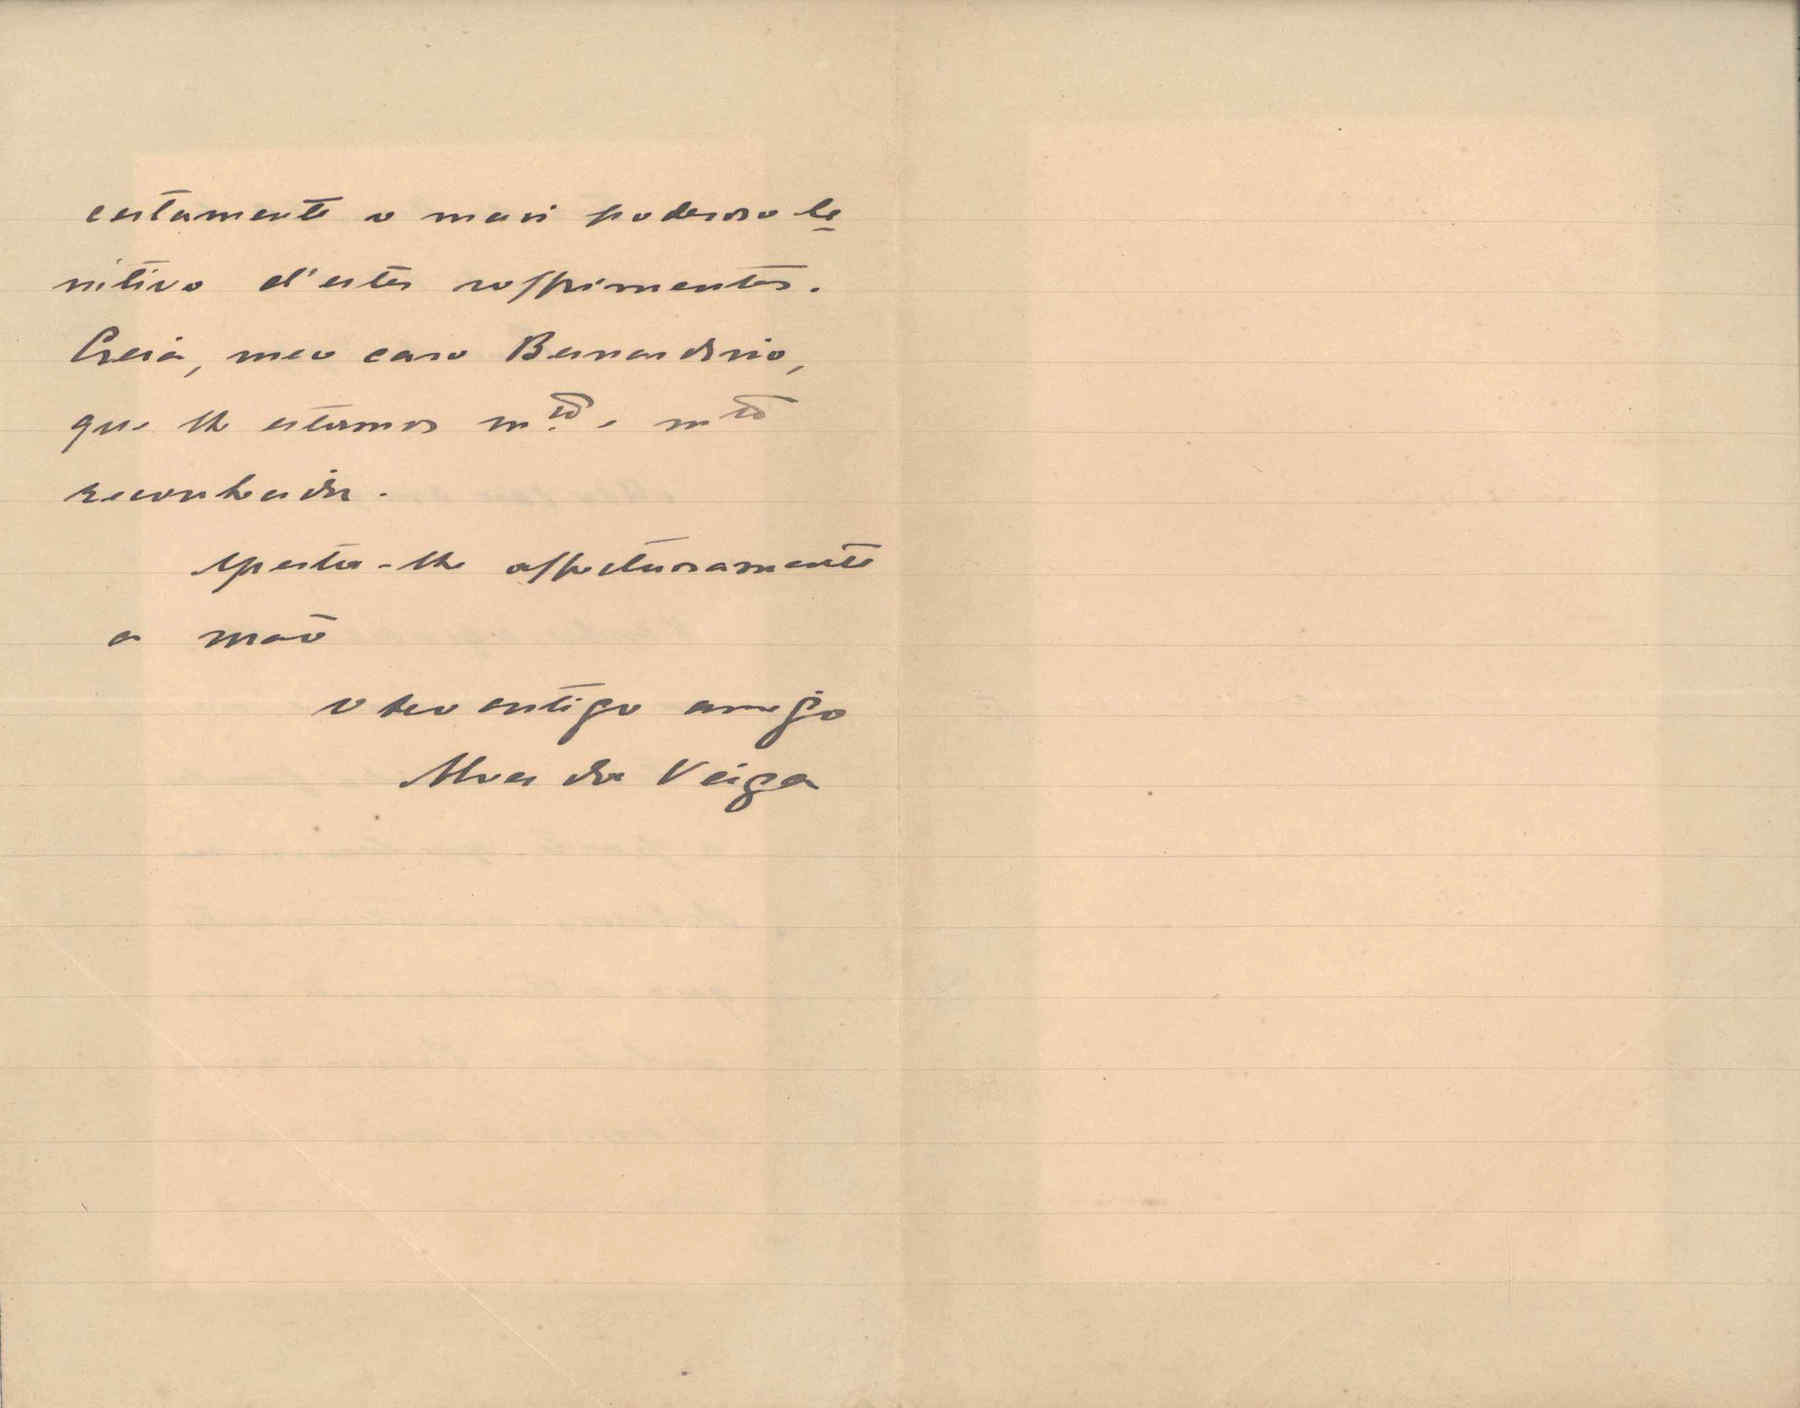 certamente o mais poderoso le
nitivo d'estes soffrimentos.
Creia, meu caro Bernardino,
que lhe estamos m.to e mto
reconhecidos.
Aperta-lhe affectuosamente
a mão
o seu antigo amigo
Alves da Veiga